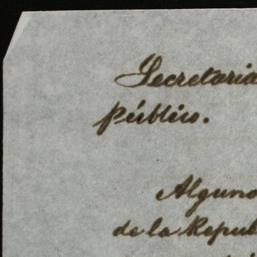 Secretaria
Público.
Alguno
de la Repub